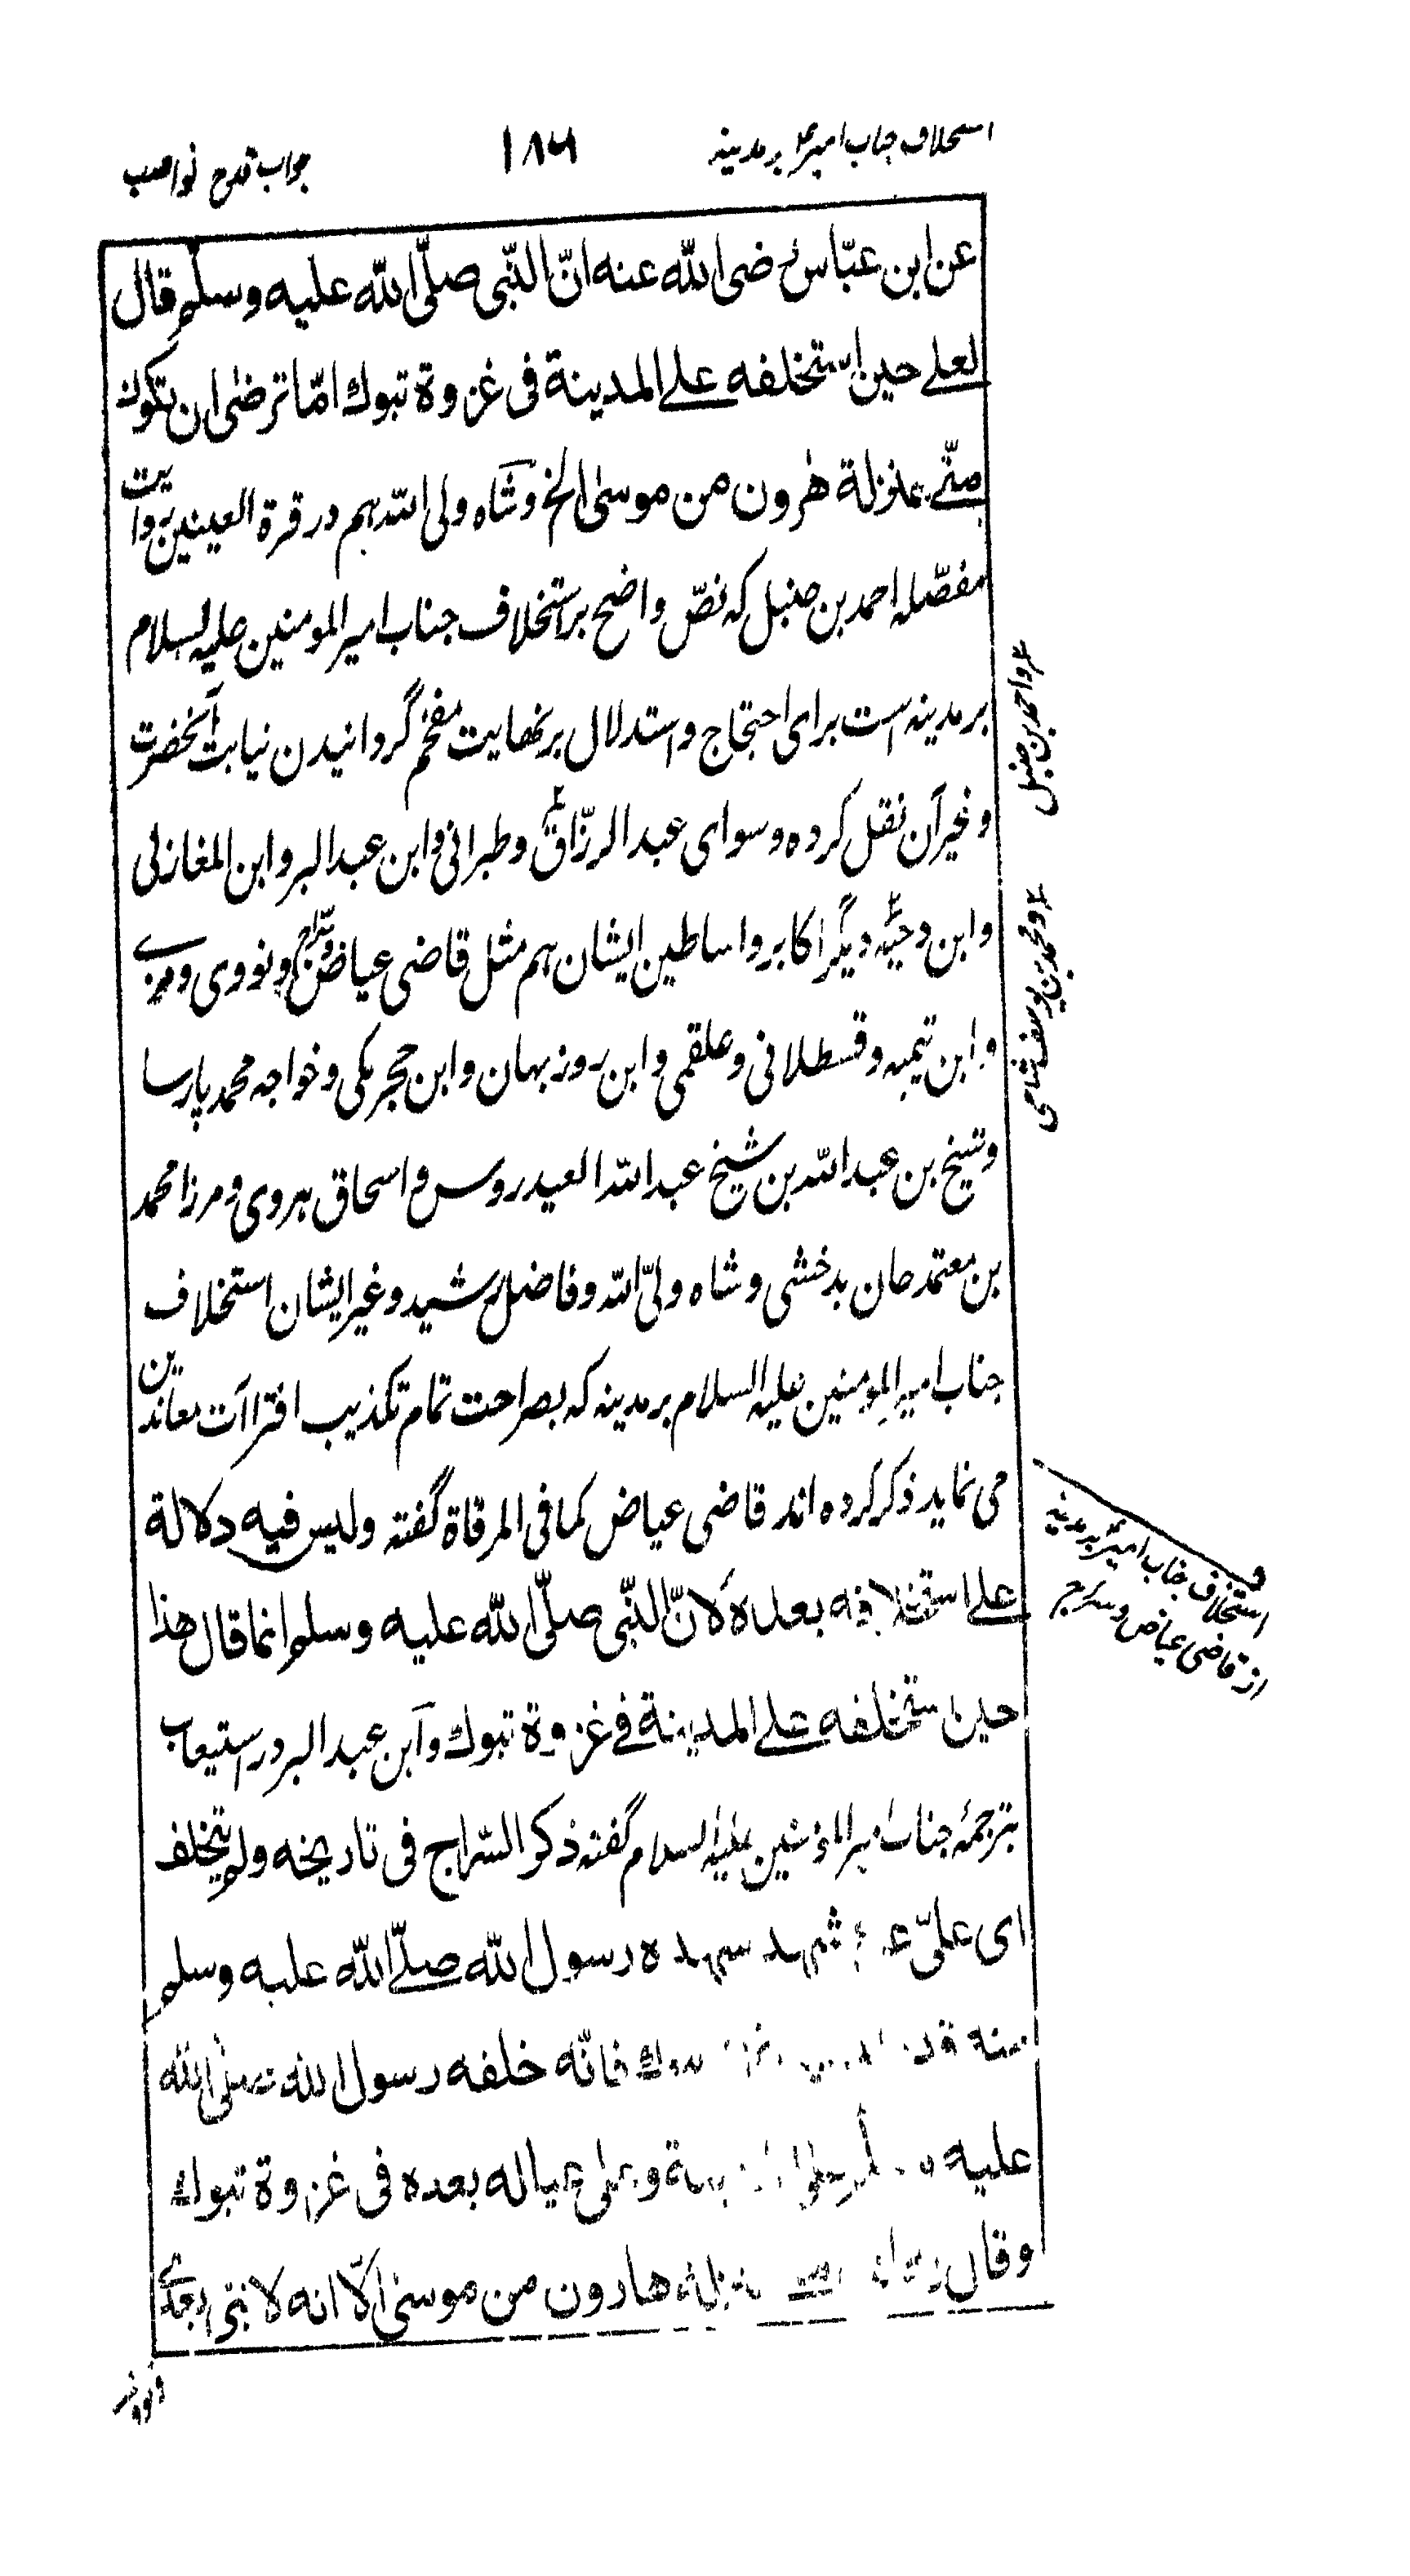 استخلاف جناب امیرؑ بر مدینه
۱۸۶
جواب قدح نواصب
عن ابن عبّاس رضی الله عنه انّ النّبی صلّی الله علیه وسلم قال
لعلی حین استخلفه علی المدینة فی غزوة تبوك امّا ترضی ان تکون
منّی بمنزلة هٰرون من موسیٰ الخ وشاه ولی الله هم در قرة العینین روایت
مفصّله احمد بن حنبل که نصّ واضح بر استخلاف جناب امیر المومنین علیه السلام
بر مدینه است برای احتجاج و استدلال بر نهایت مفخّم گردانیدن نیابت آنحضرت
وغیر آن نقل کرده وسوای عبد الرزّاق وطبرانی وابن عبد البر وابن المغازلی
وابن دحیّه دیگر اکابر واساطین ایشان هم مثل قاضی عیاض وسراج ونووی ومزی
وابن تیمیه وقسطلانی وعلقمی وابن روزبهان وابن حجر مکی وخواجه محمد پارسا
وشیخ بن عبدالله بن شیخ عبدالله العیدروس واسحاق هروی ومرزا محمد
بن معتمد خان بدخشی وشاه ولیّ الله وفاضل رشید وغیر ایشان استخلاف
جناب امیر المومنین علیه السلام بر مدینه که بصراحت تمام تکذیب افتراآت معاندین
می نماید ذکر کرده اند قاضی عیاض کما فی المرقاة گفته ولیس فیه دلالة
علی استخلافه بعده لانّ النّبی صلّی الله علیه وسلم انما قال هذا
حین استخلفه علی المدینة فی غزوة تبوك وابن عبد البر در استیعاب
بترجمۀ جناب امیر المؤمنین علیه السلام گفته ذکر السّراج فی تاریخه ولم یتخلف
ای علیّ ع شهد شهده رسول الله صلّی الله علیه وسلم
تبوك فانّه خلفه رسول الله صلی الله
علیه وعلی عیاله بعده فی غزوة تبوك
وقال هارون من موسیٰ الّا انه لا نبی بعدی
۲ واحمد بن حنبل
۲ ومحمد بن یوسف شامی
استخلاف جناب امیرؑ بر مدینه
از قاضی عیاض وسراج